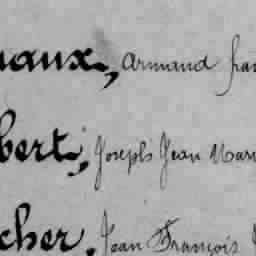 naux, Armand fra
bert, Joseph Jean Mari
cher, Jean François